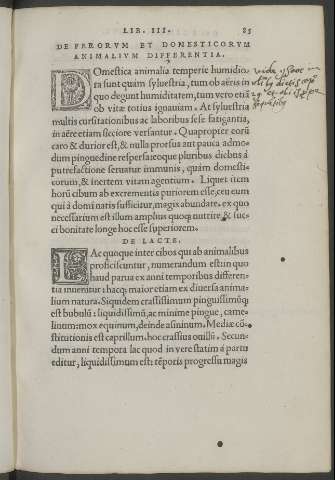 LIB. III. 85
DE FERORVM ET DOMESTICORVM
ANIMALIVM DIFFERENTIA.
DOmestica animalia temperie humidio-
ra sunt quàm syluestria, tum ob aëris in
quo degunt humiditatem, tum vero etiā
ob vitæ totius ignauiam. At syluestria
multis cursitationibus ac laboribus sese fatigantia,
in aëre etiam sicciore versantur. Quapropter eorū
caro & durior est, & nulla prorsus aut pauca admo-
dum pinguedine respersa: eoque pluribus diebus à
putrefactione seruatur immunis, quàm domesti-
corum, & inertem vitam agentium. Liquet item
horū cibum ab excrementis puriorem esse, ceu eum
qui à domi natis sufficitur, magis abundare. ex quo
necessarium est illum amplius quoq; nutrire, & suc-
ci bonitate longe hoc esse superiorem.
DE LACTE.
LAc quoque inter cibos qui ab animalibus
proficiscuntur, numerandum est: in quo
haud parua ex anni temporibus differen-
tia inuenitur: hacq; maior etiam ex diuersa anima-
lium natura. Siquidem crassissimum pinguissimūq;
est bubulū: liquidissimū, ac minime pingue, came-
linum: mox equinum, deinde asininum. Mediæ cō-
stitutionis est caprillum. hoc crassius ouillū. Secun-
dum anni tempora lac quod in vere statim à partu
editur, liquidissimum est: tēporis progressu magis